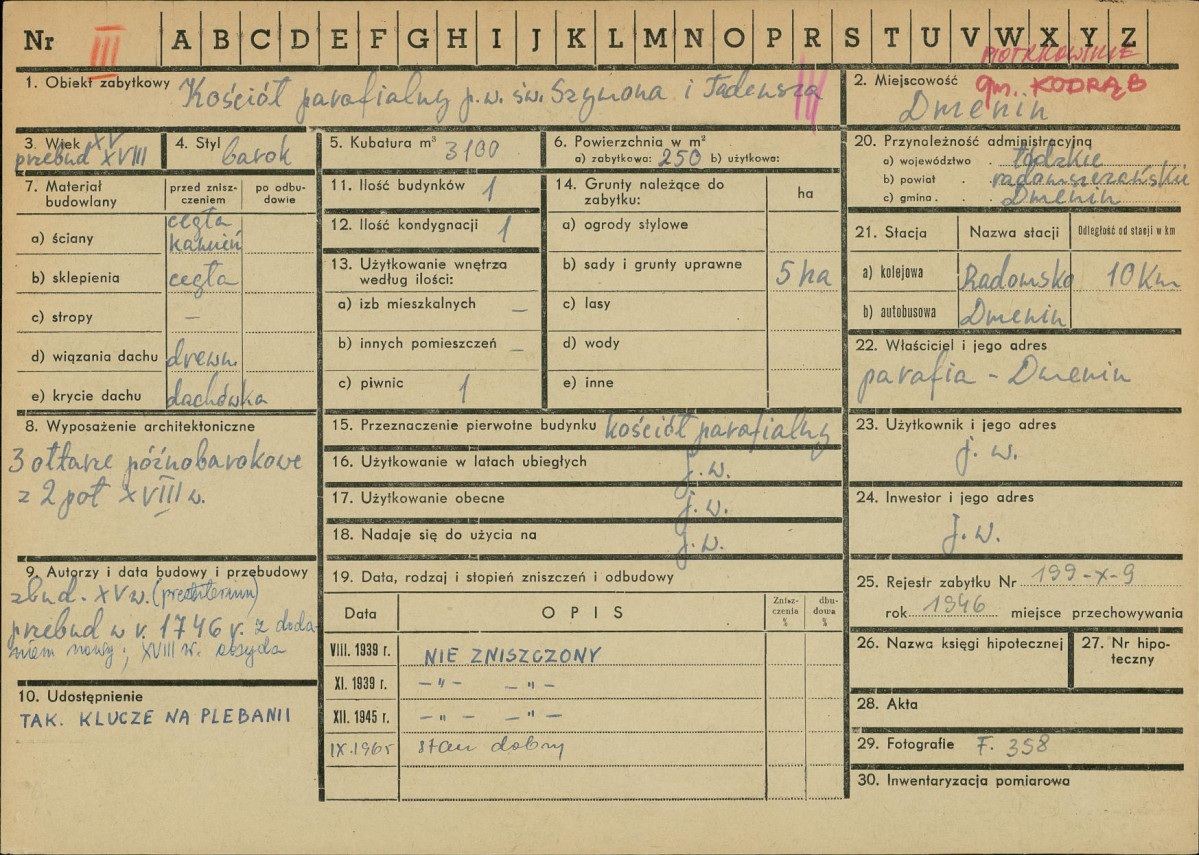 Nr III A B C D E F G H I J K L M N O P R S T U V W X Y Z
PIOTRKOWSKIE
1. Obiekt zabytkowy Kościół parafialny p.w. św. Szymona i Tadeusza
2. Miejscowość gm. KODRĄB
Dmenin
3. Wiek XV
przebud XVIII
4. Styl barok
5. Kubatura m³ 3100
6. Powierzchnia w m²
a) zabytkowa: 250 b) użytkowa:
7. Materiał budowlany
przed zniszczeniem
po odbudowie
a) ściany cegła
kamień
b) sklepienia cegła
c) stropy —
d) wiązania dachu drewn.
e) krycie dachu dachówka
8. Wyposażenie architektoniczne
3 ołtarze późnobarokowe
z 2 poł XVIII w.
9. Autorzy i data budowy i przebudowy
zbud. XV w. (prezbiterium)
przebud w r. 1746 r. z doda-
niem nawy; XVIII w. absyda
10. Udostępnienie
TAK. KLUCZE NA PLEBANII
11. Ilość budynków 1
12. Ilość kondygnacji 1
13. Użytkowanie wnętrza
według ilości:
a) izb mieszkalnych —
b) innych pomieszczeń —
c) piwnic 1
14. Grunty należące do
zabytku:
ha
a) ogrody stylowe
b) sady i grunty uprawne 5 ha
c) lasy
d) wody
e) inne
15. Przeznaczenie pierwotne budynku kościół parafialny
16. Użytkowanie w latach ubiegłych j.w.
17. Użytkowanie obecne j.w.
18. Nadaje się do użycia na j.w.
19. Data, rodzaj i stopień zniszczeń i odbudowy
Data OPIS Zniszczenia % dbudowa %
VIII. 1939 r. NIE ZNISZCZONY
XI. 1939 r. — " — — " —
XII. 1945 r. — " — — " —
IX.1965 stan dobry
20. Przynoleżność administracyjną
a) województwo . łódzkie
b) powiat . . radomszczańskie
c) gmina . . Dmenin
21. Stacja Nazwa stacji Odległość od stacji w km
a) kolejowa Radomsko 10 Km
b) autobusowa Dmenin
22. Właściciel i jego adres
parafia - Dmenin
23. Użytkownik i jego adres
j. w.
24. Inwestor i jego adres
j. w.
25. Rejestr zabytku Nr 199-X-9
rok 1946 miejsce przechowywania
26. Nazwa księgi hipotecznej
27. Nr hipo-
teczny
28. Akta
29. Fotografie F. 358
30. Inwentaryzacja pomiarowa